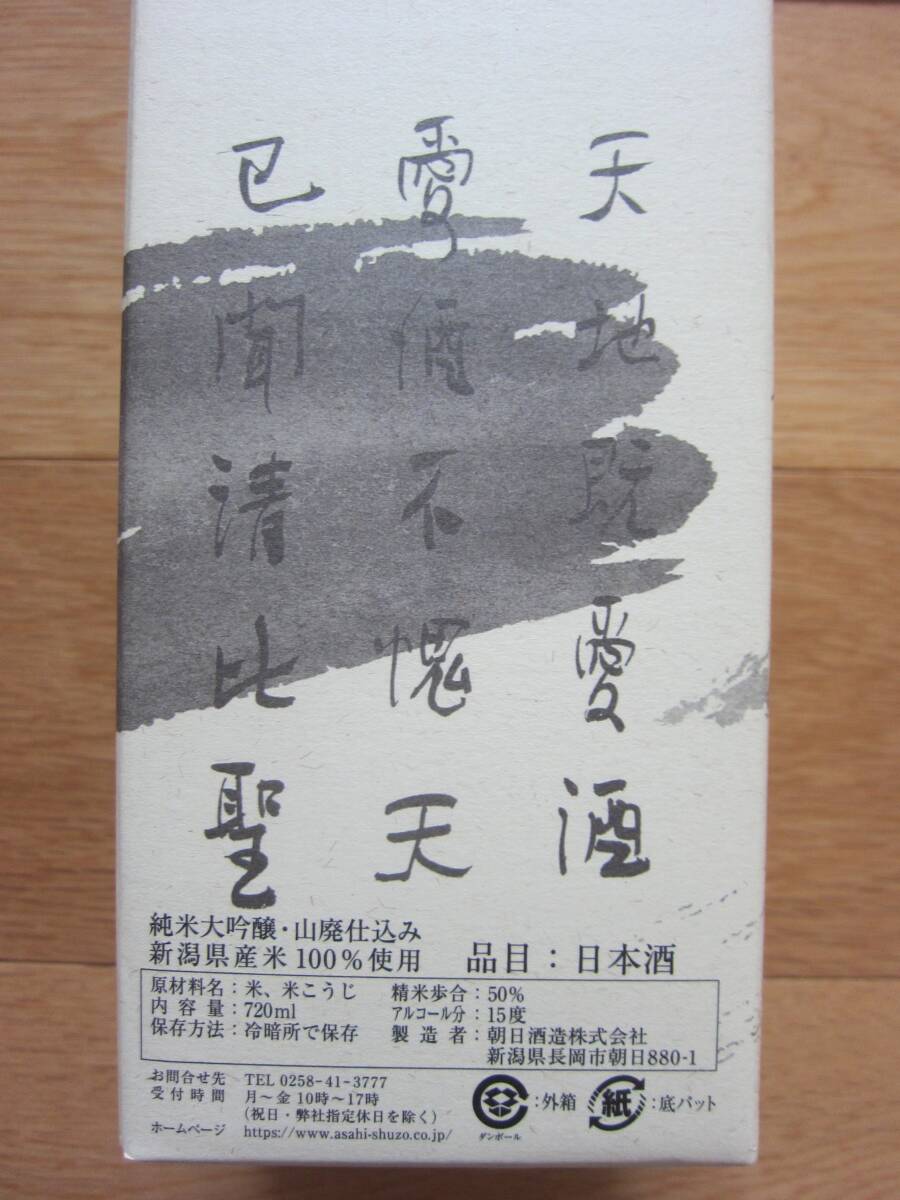 天地既愛酒
愛酒不愧天
已聞清比聖
純米大吟醸・山廃仕込み
新潟県産米100%使用
品目：日本酒
原材料名：米、米こうじ
内容量：720ml
保存方法：冷暗所で保存
精米歩合：50%
アルコール分：15度
製造者：朝日酒造株式会社
新潟県長岡市朝日880-1
お問合せ先 TEL 0258-41-3777
受付時間 月～金 10時～17時
(祝日・弊社指定休日を除く)
ホームページ https://www.asahi-shuzo.co.jp/
ダンボール
：外箱
紙
：底パット